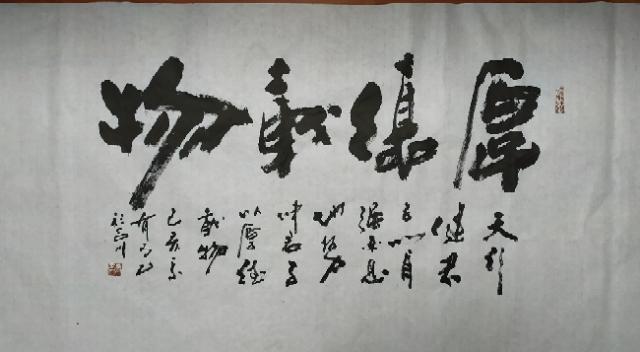 厚德载物
天行
健君
子以自
强不息
地势
坤君子
以厚德
载物
己亥